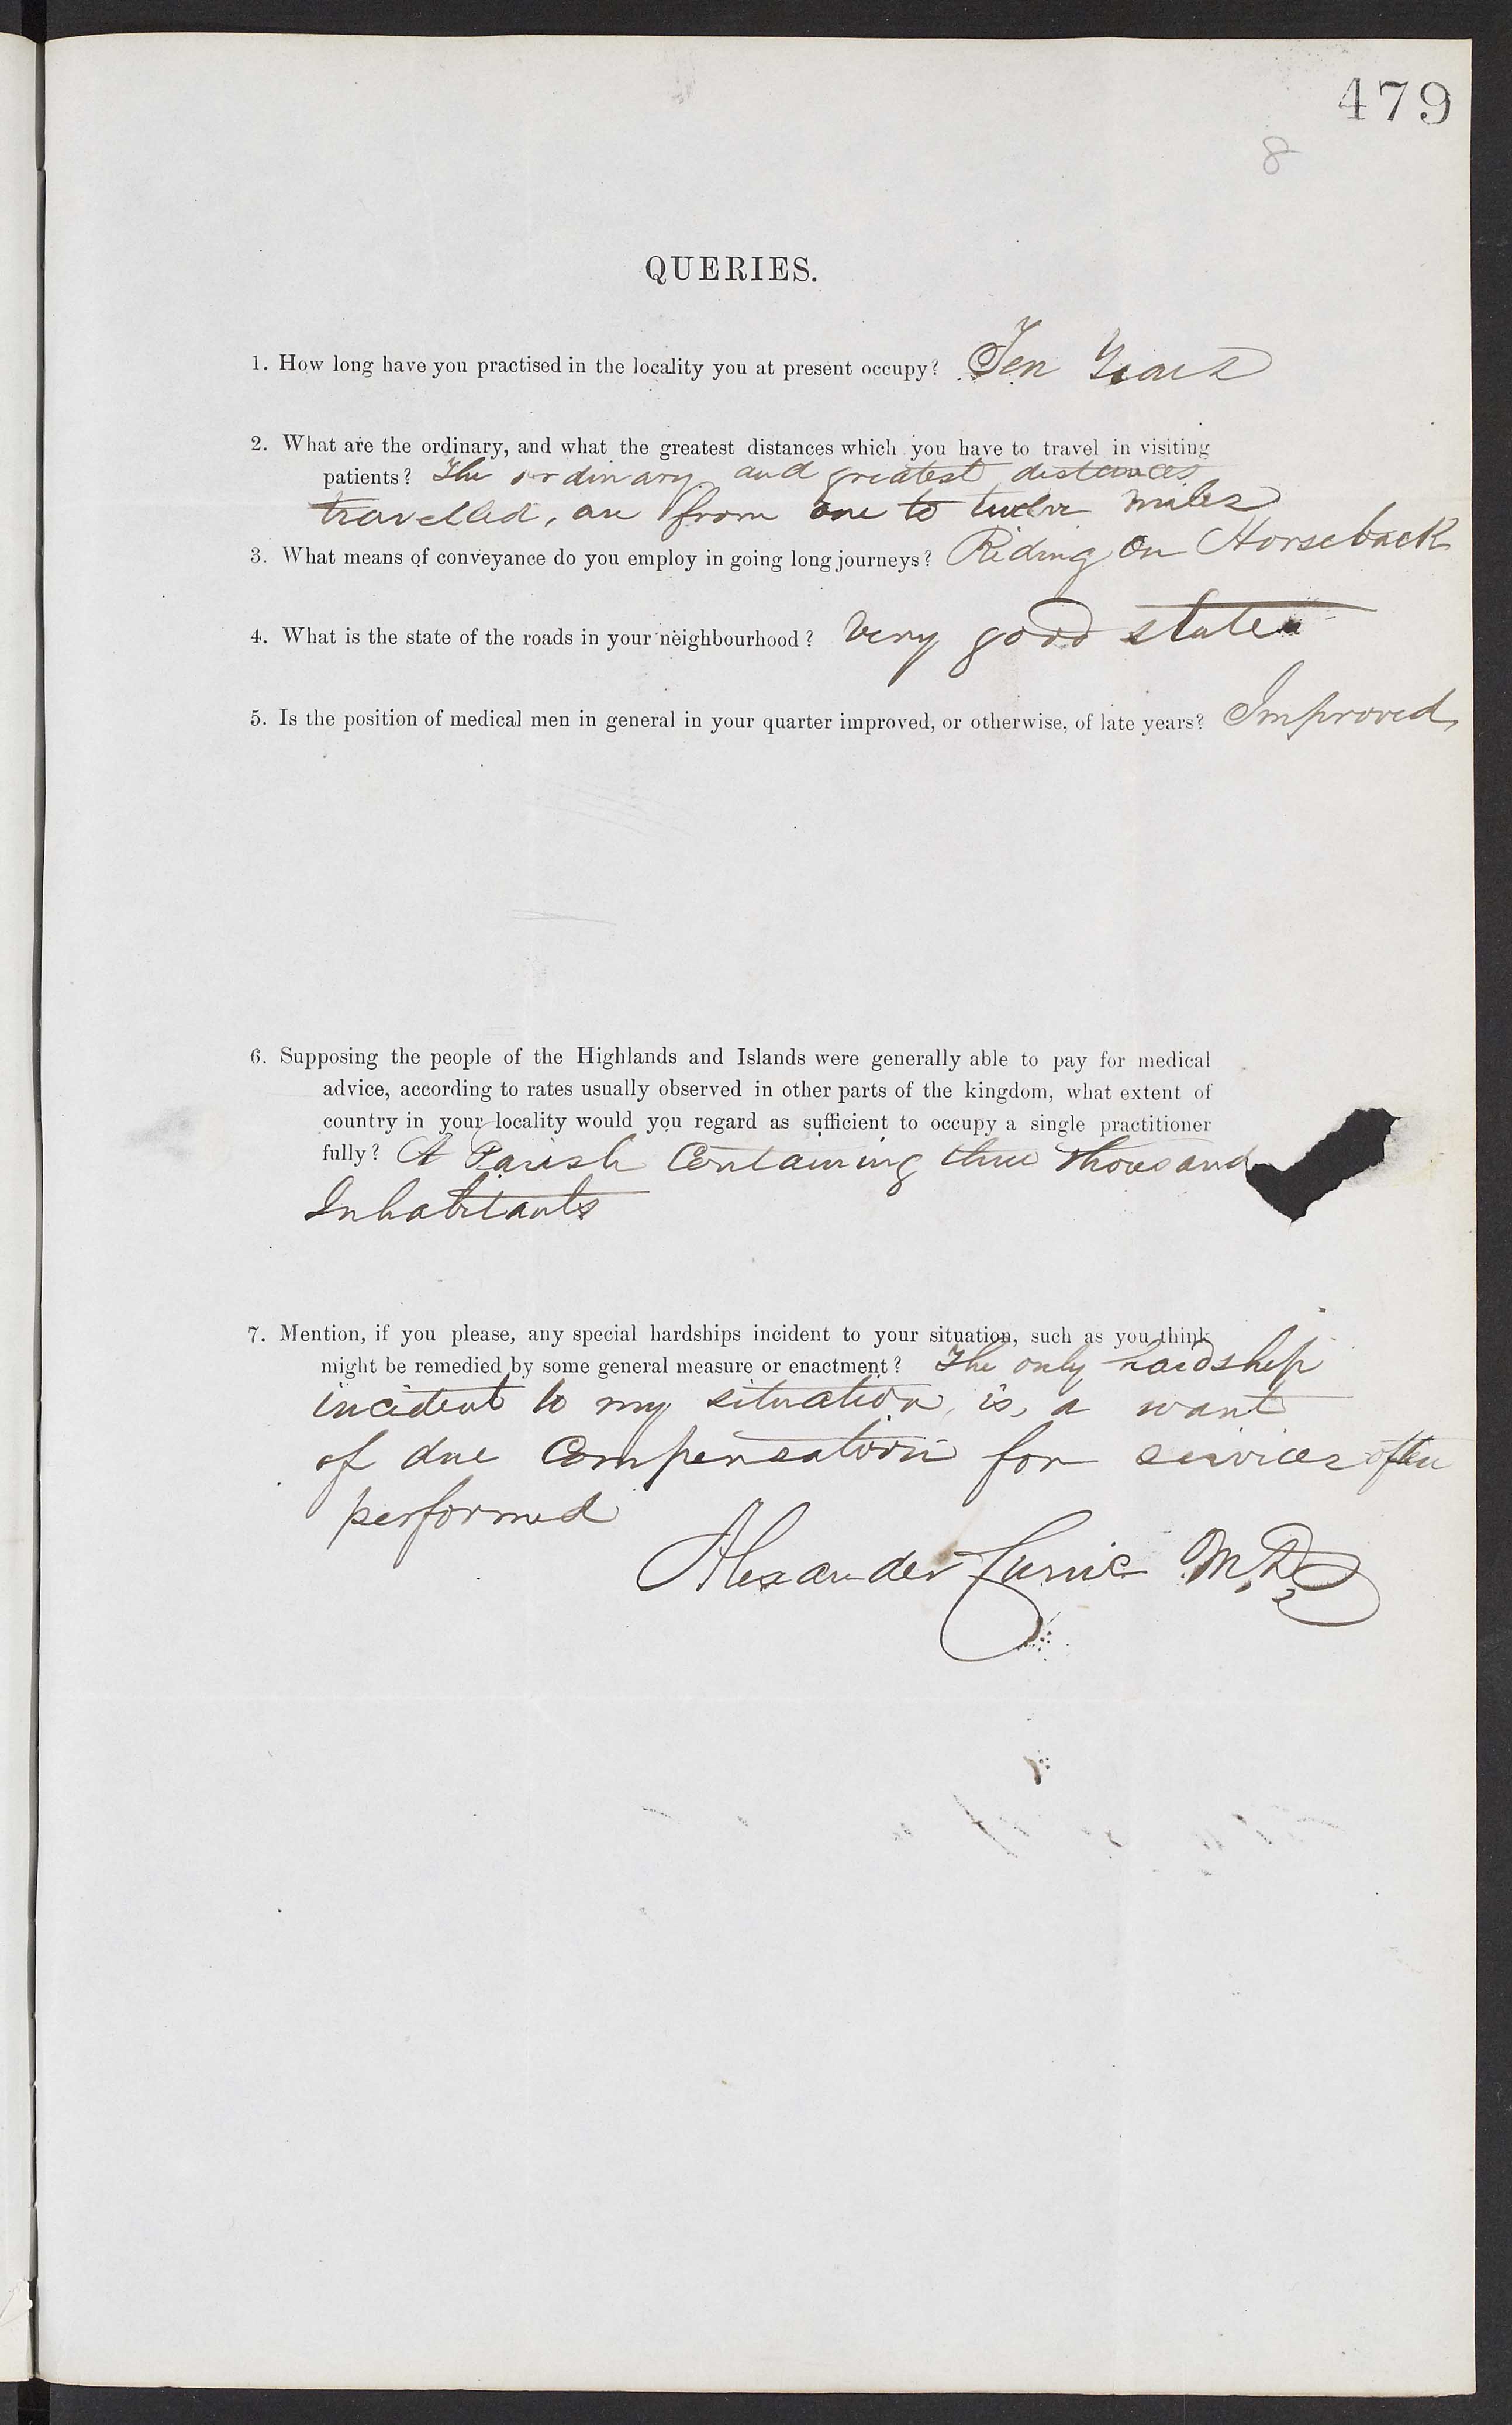 479
8
QUERIES.
1. How long have you practised in the locality you at present occupy? Ten Years
2. What are the ordinary, and what the greatest distances which you have to travel in visiting
patients? The ordinary and greatest distances
travelled, are from one to twelve miles
3. What means of conveyance do you employ in going long journeys? Riding on Horseback
4. What is the state of the roads in your neighbourhood? Very good state
5. Is the position of medical men in general in your quarter improved, or otherwise, of late years? Improved,
6. Supposing the people of the Highlands and Islands were generally able to pay for medical
advice, according to rates usually observed in other parts of the kingdom, what extent of
country in your locality would you regard as sufficient to occupy a single practitioner
fully? A Parish Containing three thousand
Inhabitants
7. Mention, if you please, any special hardships incident to your situation, such as you think
might be remedied by some general measure or enactment? The only hardship
incident to my situation, is, a want
of due Compensation for services often
performed
Alexander Currie M.D.